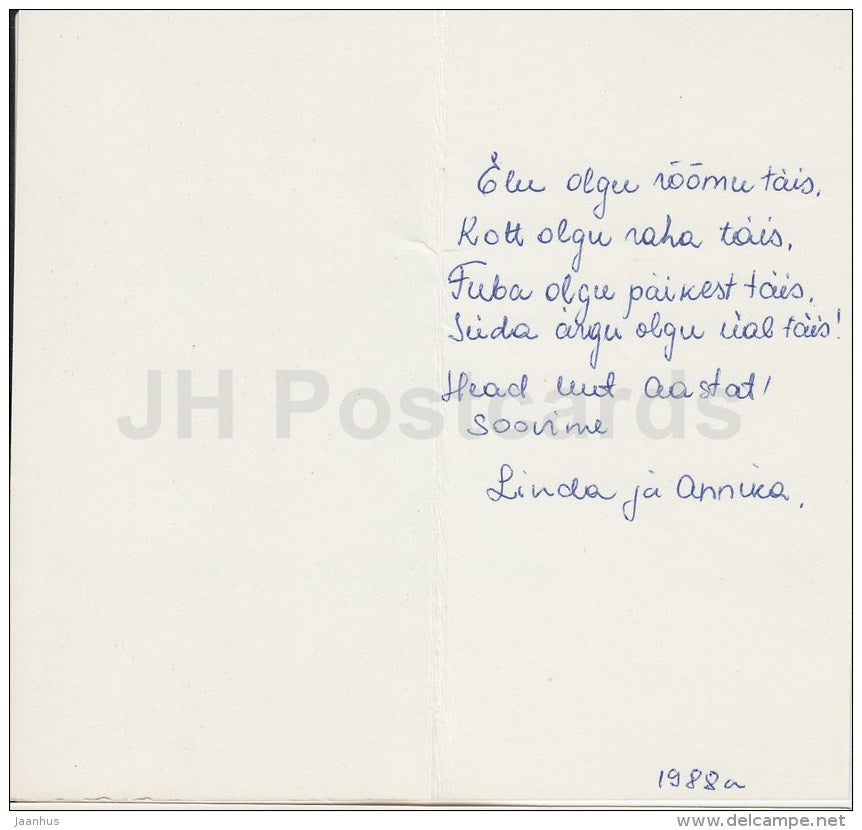 Elu olgu rõõmu täis.
Kott olgu raha täis.
Tuba olgu päikest täis.
Süda ärgu olgu üal täis!
Head uut aastat!
soovime
Linda ja Annika.
JH Postcards
1988a
jaanhus
www.delcampe.net